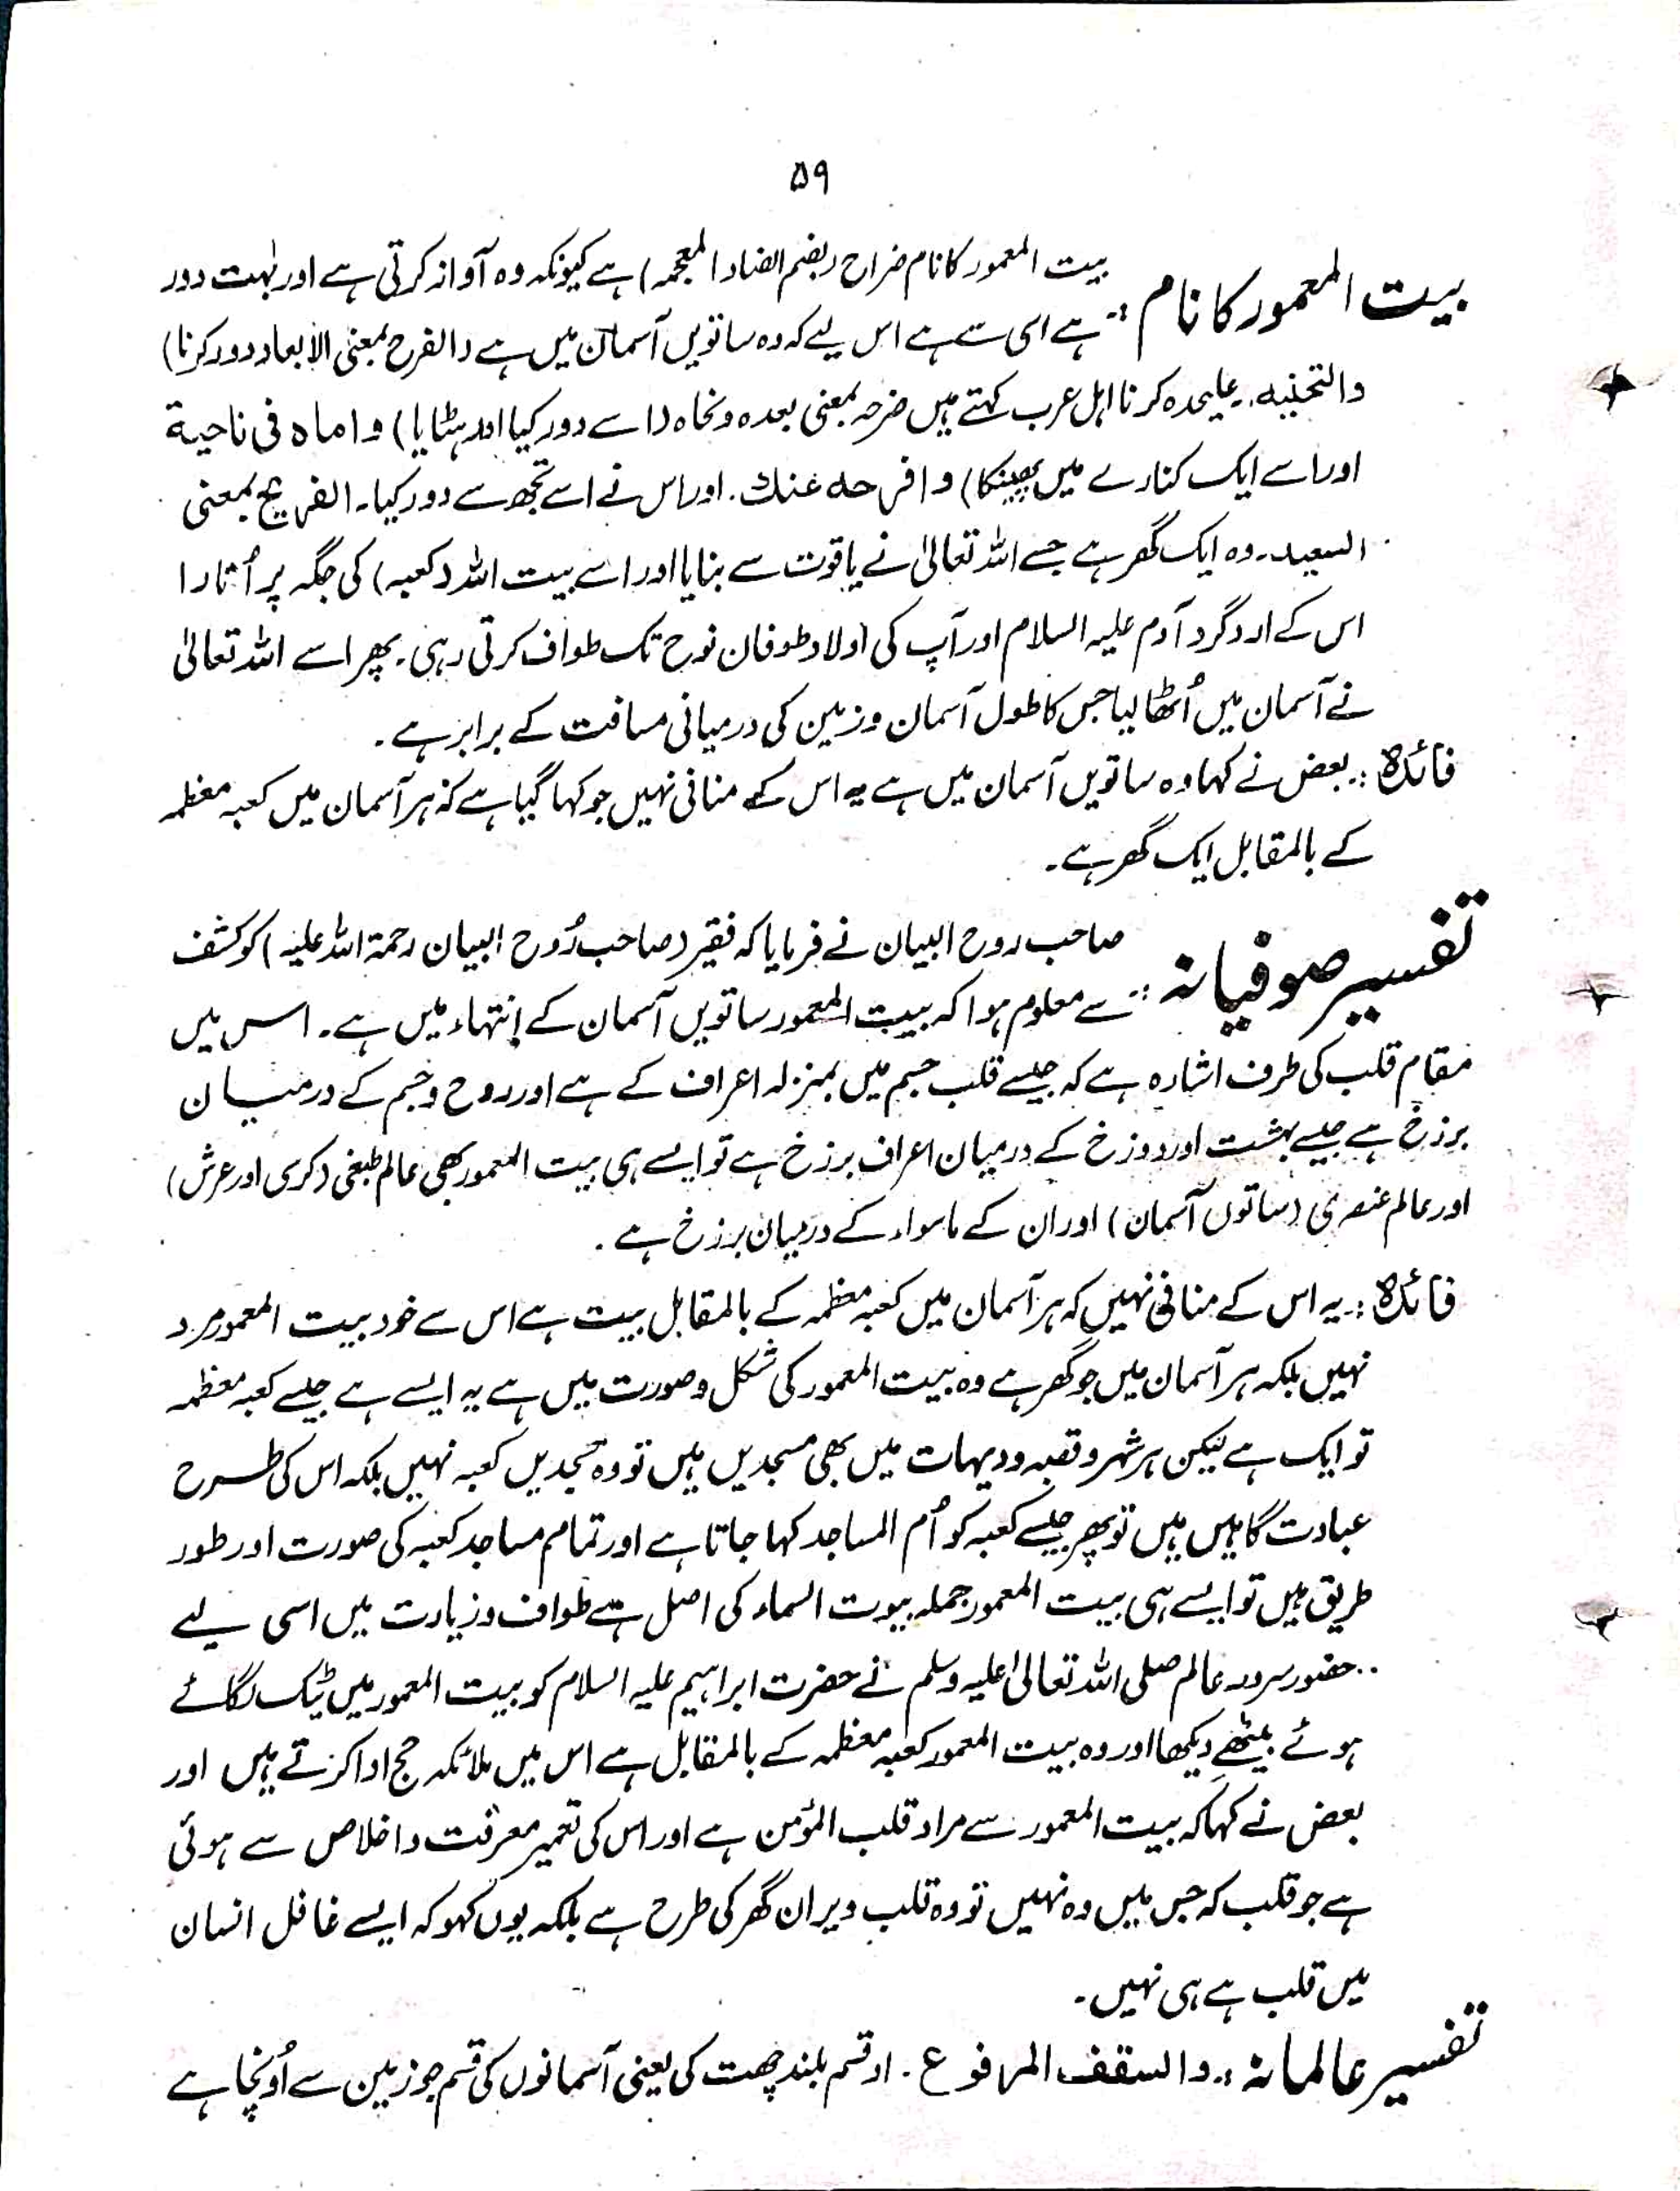 ۵۹
بیت المعمور کا نام :۔ بیت المعمور کا نام ضراح (بضم الضاد المعجمہ) ہے کیونکہ وہ آواز کرتی ہے اور بہت دور
ہے اسی سے ہے اس لیے کہ وہ ساتویں آسمان میں ہے (الفرح بمعنی الابعاد دور کرنا)
والتحنیہ۔ علیحدہ کرنا اہل عرب کہتے ہیں ضرحہ بمعنی بعدہ ونحاہ (اسے دور کیا اور ہٹایا) و اماہ فی ناحیة
اور اسے ایک کنارے میں پھینکا) و افرحه عنك۔ اور اس نے اسے تجھ سے دور کیا۔ الفریح بمعنی
السعید۔ وہ ایک گھر ہے جسے اللہ تعالیٰ نے یاقوت سے بنایا اور اسے بیت اللہ (کعبہ) کی جگہ پر اُتارا
اس کے ارد گرد آدم علیہ السلام اور آپ کی اولاد طوفان نوح تک طواف کرتی رہی۔ پھر اسے اللہ تعالیٰ
نے آسمان میں اُٹھا لیا جس کا طول آسمان و زمین کی درمیانی مسافت کے برابر ہے۔
فائدہ :۔ بعض نے کہا وہ ساتویں آسمان میں ہے یہ اس کے منافی نہیں جو کہا گیا ہے کہ ہر آسمان میں کعبہ معظمہ
کے بالمقابل ایک گھر ہے۔
تفسیر صوفیانہ :۔ صاحب روح البیان نے فرمایا کہ فقیر (صاحب رُوح البیان رحمۃ اللہ علیہ) کو کشف
سے معلوم ہوا کہ بیت المعمور ساتویں آسمان کے اِنتہاء میں ہے۔ اس میں
مقام قلب کی طرف اشارہ ہے کہ جیسے قلب جسم میں بمنزلہ اعراف کے ہے اور روح و جسم کے درمیان
برزخ ہے جیسے بہشت اور دوزخ کے درمیان اعراف برزخ ہے تو ایسے ہی بیت المعمور بھی عالم طبغی (کرسی اور عرش)
اور عالم عنصری (ساتوں آسمان) اور ان کے ماسواء کے درمیان برزخ ہے۔
فائدہ :۔ یہ اس کے منافی نہیں کہ ہر آسمان میں کعبہ معظمہ کے بالمقابل بیت ہے اس سے خود بیت المعمور مرد
نہیں بلکہ ہر آسمان میں جو گھر ہے وہ بیت المعمور کی شکل و صورت میں ہے یہ ایسے ہے جیسے کعبہ معظمہ
تو ایک ہے لیکن ہر شہر و قصبہ و دیہات میں بھی مسجدیں ہیں تو وہ مسجدیں کعبہ نہیں بلکہ اس کی طرح
عبادت گاہیں ہیں تو پھر جیسے کعبہ کو اُم المساجد کہا جاتا ہے اور تمام مساجد کعبہ کی صورت اور طور
طریق ہیں تو ایسے ہی بیت المعمور جملہ بیوت السماء کی اصل ہے طواف و زیارت میں اسی لیے
حضور سرور عالم صلی اللہ تعالیٰ علیہ وسلم نے حضرت ابراہیم علیہ السلام کو بیت المعمور میں ٹیک لگائے
ہوئے بیٹھے دیکھا اور وہ بیت المعمور کعبہ معظمہ کے بالمقابل ہے اس میں ملائکہ حج ادا کرتے ہیں اور
بعض نے کہا کہ بیت المعمور سے مراد قلب المؤمن ہے اور اس کی تعمیر معرفت و اخلاص سے ہوئی
ہے جو قلب کہ جس میں وہ نہیں تو وہ قلب ویران گھر کی طرح ہے بلکہ یوں کہو کہ ایسے غافل انسان
میں قلب ہے ہی نہیں۔
تفسیر عالمانہ :۔ والسقف المرفوع۔ اور قسم بلند چھت کی یعنی آسمانوں کی قسم جو زمین سے اُونچا ہے